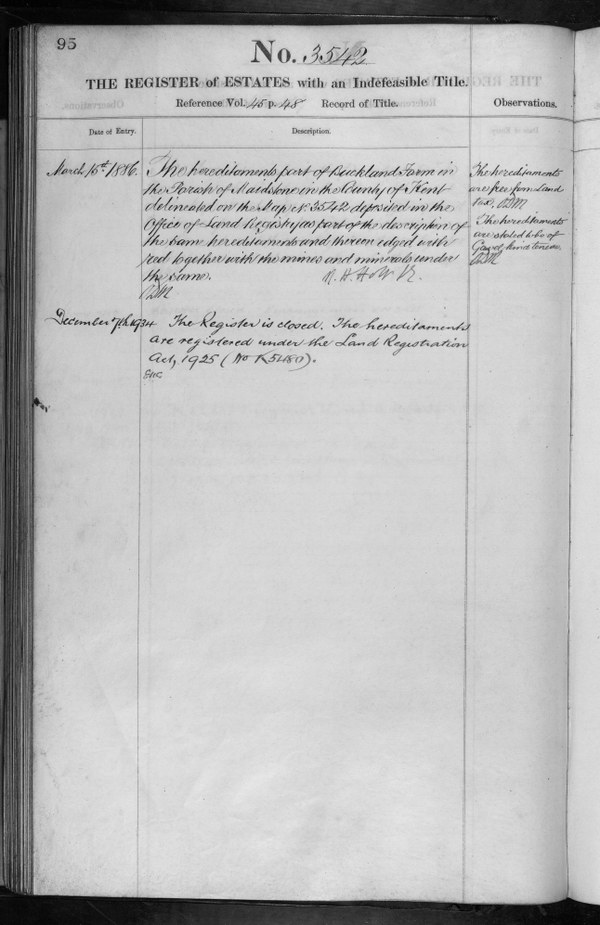 95
No. 3542
THE REGISTER of ESTATES with an Indefeasible Title.
Reference Vol. 45 p. 48 Record of Title.
Observations.
Date of Entry.
Description.
March 15th 1886.
The hereditaments part of Buckland Farm in
the Parish of Maidstone in the County of Kent
delineated on the Map No. 3542 deposited in the
Office of Land Registry as part of the description of
the same hereditaments and thereon edged with
red together with the mines and minerals under
the same.
The hereditaments
are free from Land
Tax.
The hereditaments
are stated to be of
Gavelkind tenure.
December 7th 1934
The Register is closed. The hereditaments
are registered under the Land Registration
Act, 1925 (No K5480).